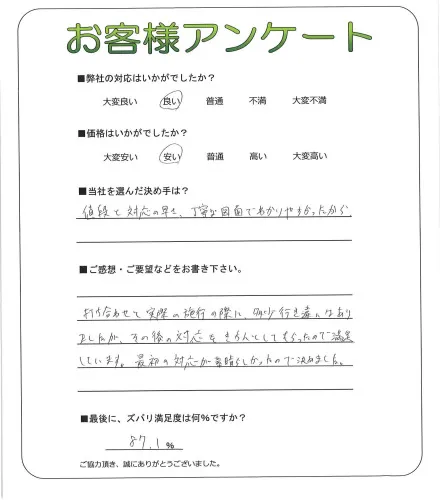 お客様アンケート
■弊社の対応はいかがでしたか？
大変良い 良い 普通 不満 大変不満
■価格はいかがでしたか？
大変安い 安い 普通 高い 大変高い
■当社を選んだ決め手は？
値段と対応の早さ、丁寧な図面でわかりやすかったから
■ご感想・ご要望などをお書き下さい。
打ち合わせと実際の施行の際に、多少行き違いはあり
ましたが、その後の対応をきちんとしてもらったので満足
しています。最初の対応が素晴らしかったので決めました。
■最後に、ズバリ満足度は何％ですか？
87.1％
ご協力頂き、誠にありがとうございました。